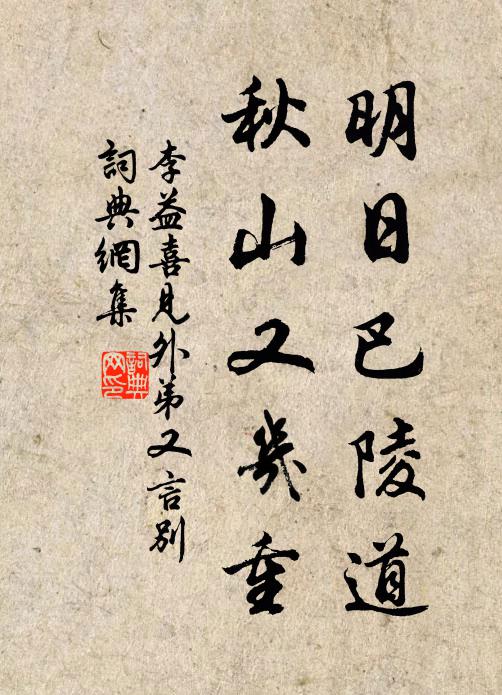 明日巴陵道
秋山又幾重
李益喜見外弟又言別
詞典網集
詞典網印